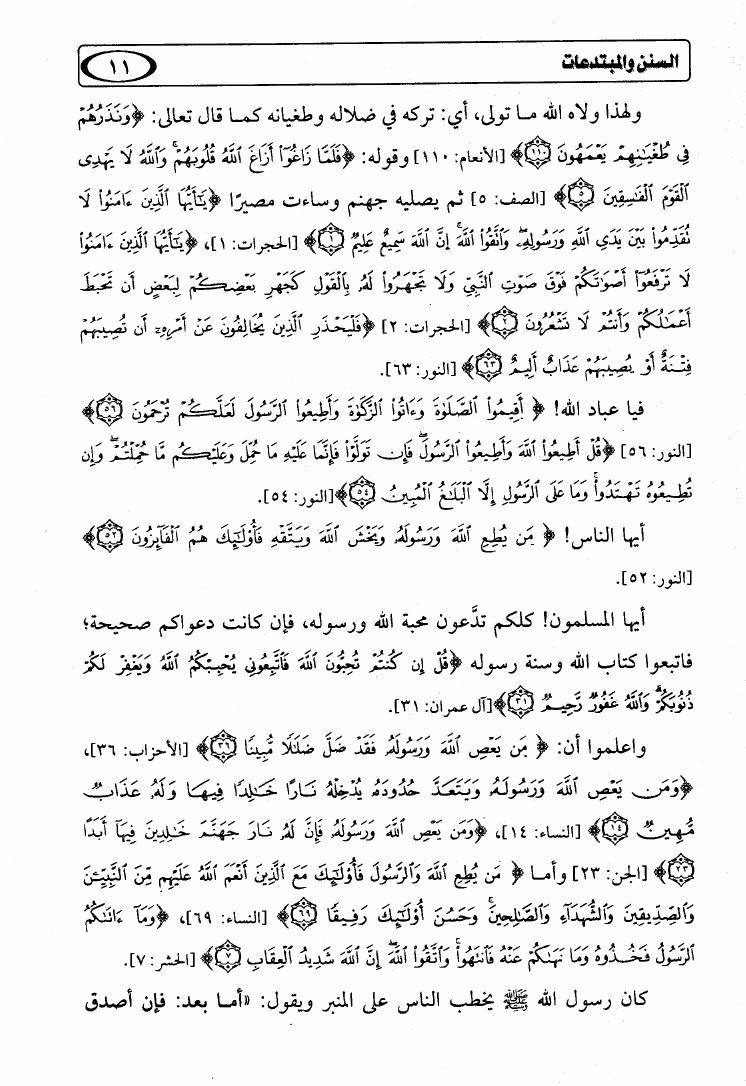 السنن والمبتدعات
١١
ولهذا ولاه الله ما تولى، أي: تركه في ضلاله وطغيانه كما قال تعالى: ﴿وَنَذَرُهُمْ
فِي طُغْيَٰنِهِمْ يَعْمَهُونَ ١١٠﴾ [الأنعام: ١١٠] وقوله: ﴿فَلَمَّا زَاغُوٓا۟ أَزَاغَ ٱللَّهُ قُلُوبَهُمْ ۚ وَٱللَّهُ لَا يَهْدِى
ٱلْقَوْمَ ٱلْفَٰسِقِينَ ٥﴾ [الصف: ٥] ثم يصليه جهنم وساءت مصيرًا ﴿يَٰٓأَيُّهَا ٱلَّذِينَ ءَامَنُوا۟ لَا
تُقَدِّمُوا۟ بَيْنَ يَدَىِ ٱللَّهِ وَرَسُولِهِۦ ۖ وَٱتَّقُوا۟ ٱللَّهَ ۚ إِنَّ ٱللَّهَ سَمِيعٌ عَلِيمٌ ١﴾ [الحجرات: ١]، ﴿يَٰٓأَيُّهَا ٱلَّذِينَ ءَامَنُوا۟
لَا تَرْفَعُوٓا۟ أَصْوَٰتَكُمْ فَوْقَ صَوْتِ ٱلنَّبِىِّ وَلَا تَجْهَرُوا۟ لَهُۥ بِٱلْقَوْلِ كَجَهْرِ بَعْضِكُمْ لِبَعْضٍ أَن تَحْبَطَ
أَعْمَٰلُكُمْ وَأَنتُمْ لَا تَشْعُرُونَ ٢﴾ [الحجرات: ٢] ﴿فَلْيَحْذَرِ ٱلَّذِينَ يُخَالِفُونَ عَنْ أَمْرِهِۦٓ أَن تُصِيبَهُمْ
فِتْنَةٌ أَوْ يُصِيبَهُمْ عَذَابٌ أَلِيمٌ ٦٣﴾ [النور: ٦٣].
فيا عباد الله! ﴿أَقِيمُوا۟ ٱلصَّلَوٰةَ وَءَاتُوا۟ ٱلزَّكَوٰةَ وَأَطِيعُوا۟ ٱلرَّسُولَ لَعَلَّكُمْ تُرْحَمُونَ ٥٦﴾
[النور: ٥٦] ﴿قُلْ أَطِيعُوا۟ ٱللَّهَ وَأَطِيعُوا۟ ٱلرَّسُولَ ۖ فَإِن تَوَلَّوْا۟ فَإِنَّمَا عَلَيْهِ مَا حُمِّلَ وَعَلَيْكُم مَّا حُمِّلْتُمْ ۖ وَإِن
تُطِيعُوهُ تَهْتَدُوا۟ ۚ وَمَا عَلَى ٱلرَّسُولِ إِلَّا ٱلْبَلَٰغُ ٱلْمُبِينُ ٥٤﴾ [النور: ٥٤].
أيها الناس! ﴿مَن يُطِعِ ٱللَّهَ وَرَسُولَهُۥ وَيَخْشَ ٱللَّهَ وَيَتَّقْهِ فَأُو۟لَٰٓئِكَ هُمُ ٱلْفَآئِزُونَ ٥٢﴾
[النور: ٥٢].
أيها المسلمون! كلكم تدَّعون محبة الله ورسوله، فإن كانت دعواكم صحيحة؛
فاتبعوا كتاب الله وسنة رسوله ﴿قُلْ إِن كُنتُمْ تُحِبُّونَ ٱللَّهَ فَٱتَّبِعُونِى يُحْبِبْكُمُ ٱللَّهُ وَيَغْفِرْ لَكُمْ
ذُنُوبَكُمْ ۗ وَٱللَّهُ غَفُورٌ رَّحِيمٌ ٣١﴾ [آل عمران: ٣١].
واعلموا أن: ﴿مَن يَعْصِ ٱللَّهَ وَرَسُولَهُۥ فَقَدْ ضَلَّ ضَلَٰلًا مُّبِينًا ٣٦﴾ [الأحزاب: ٣٦]،
﴿وَمَن يَعْصِ ٱللَّهَ وَرَسُولَهُۥ وَيَتَعَدَّ حُدُودَهُۥ يُدْخِلْهُ نَارًا خَٰلِدًا فِيهَا وَلَهُۥ عَذَابٌ
مُّهِينٌ ١٤﴾ [النساء: ١٤]، ﴿وَمَن يَعْصِ ٱللَّهَ وَرَسُولَهُۥ فَإِنَّ لَهُۥ نَارَ جَهَنَّمَ خَٰلِدِينَ فِيهَآ أَبَدًا
٢٣﴾ [الجن: ٢٣] وأما ﴿مَن يُطِعِ ٱللَّهَ وَٱلرَّسُولَ فَأُو۟لَٰٓئِكَ مَعَ ٱلَّذِينَ أَنْعَمَ ٱللَّهُ عَلَيْهِم مِّنَ ٱلنَّبِيِّۦنَ
وَٱلصِّدِّيقِينَ وَٱلشُّهَدَآءِ وَٱلصَّٰلِحِينَ ۚ وَحَسُنَ أُو۟لَٰٓئِكَ رَفِيقًا ٦٩﴾ [النساء: ٦٩]، ﴿وَمَآ ءَاتَىٰكُمُ
ٱلرَّسُولُ فَخُذُوهُ وَمَا نَهَىٰكُمْ عَنْهُ فَٱنتَهُوا۟ ۚ وَٱتَّقُوا۟ ٱللَّهَ ۖ إِنَّ ٱللَّهَ شَدِيدُ ٱلْعِقَابِ ٧﴾ [الحشر: ٧].
كان رسول الله ﷺ يخطب الناس على المنبر ويقول: «أما بعد: فإن أصدق